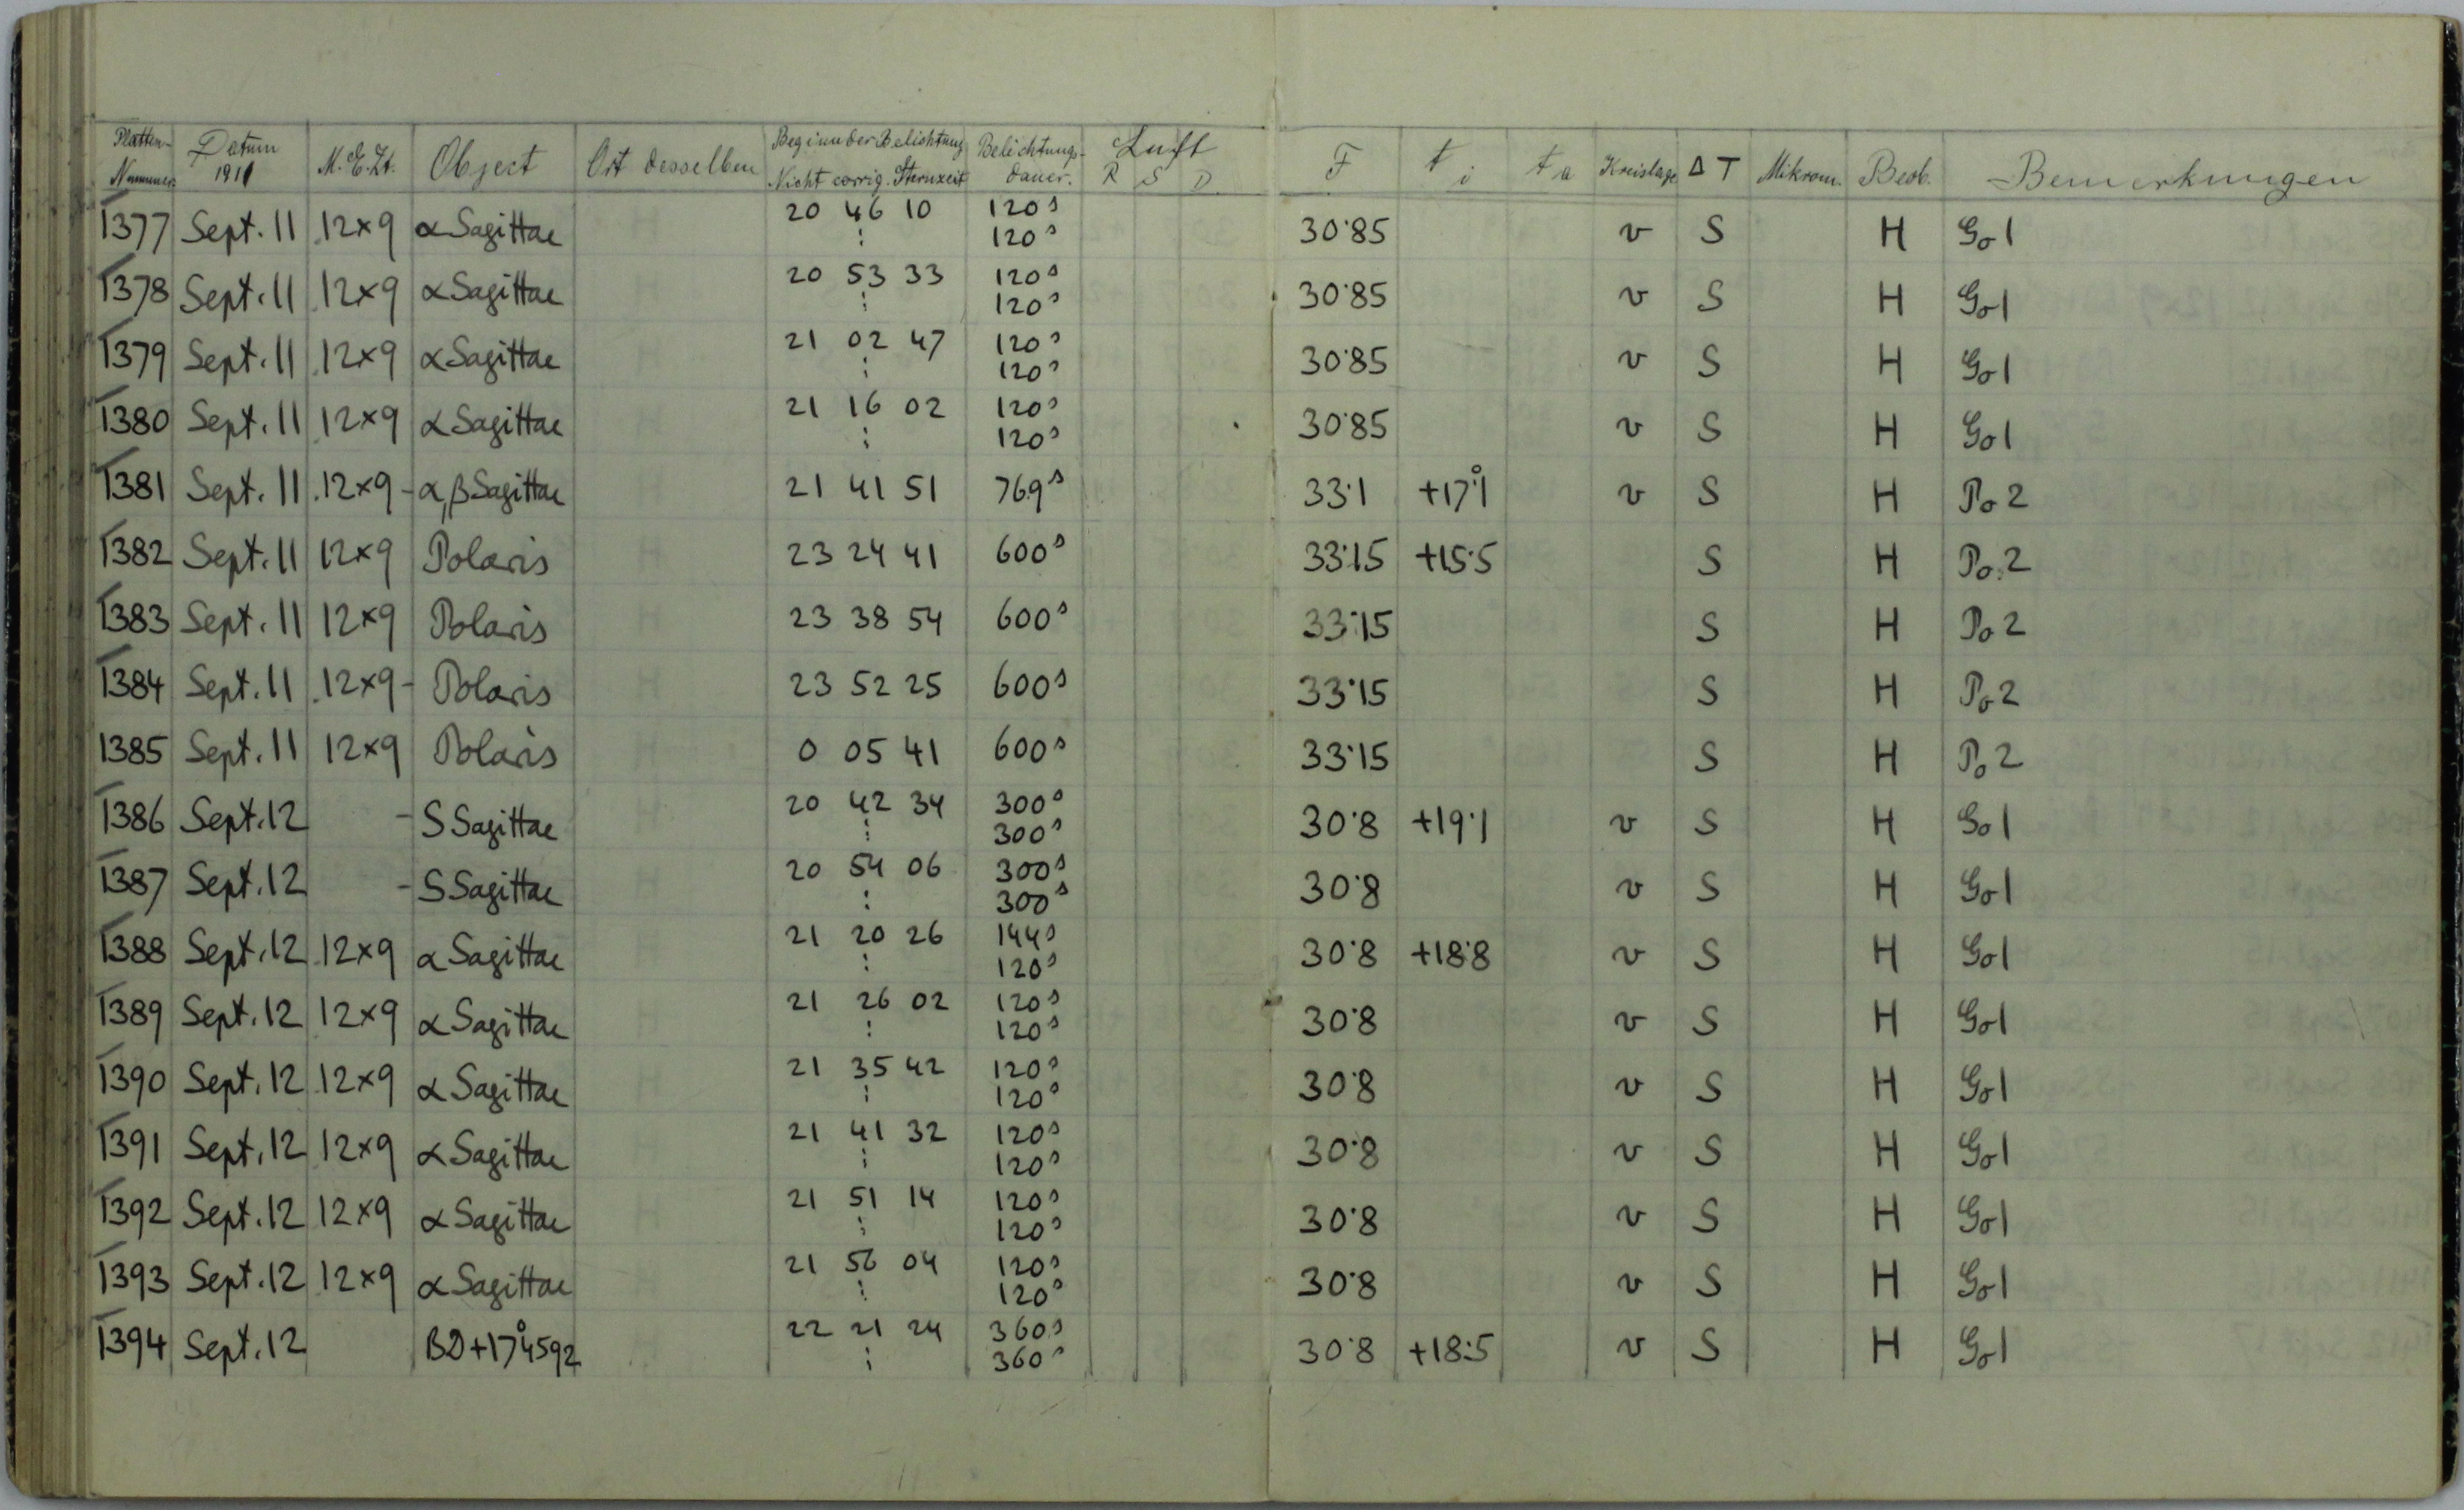 Platten- Nummer. Datum 1911 M.E.Zt. Object Ort desselben Beginn der Belichtung Nicht corrig. Sternzeit Belichtungs- dauer. Luft R S D F t i t a Kreislage Δ T Mikrom. Beob. Bemerkungen
1377 Sept. 11 12×9 α Sagittae 20 46 10 120s 30.85 v S H Go1
: 120s
1378 Sept. 11 12×9 α Sagittae 20 53 33 120s 30.85 v S H Go1
: 120s
1379 Sept. 11 12×9 α Sagittae 21 02 47 120s 30.85 v S H Go1
: 120s
1380 Sept. 11 12×9 α Sagittae 21 16 02 120s 30.85 v S H Go1
: 120s
1381 Sept. 11 12×9 - α, β Sagittae 21 41 51 769s 33.1 +17°.1 v S H Po 2
1382 Sept. 11 12×9 Polaris 23 24 41 600s 33.15 +15.5 S H Po 2
1383 Sept. 11 12×9 Polaris 23 38 54 600s 33.15 S H Po 2
1384 Sept. 11 12×9 - Polaris 23 52 25 600s 33.15 S H Po 2
1385 Sept. 11 12×9 Polaris 0 05 41 600s 33.15 S H Po 2
1386 Sept. 12 - S Sagittae 20 42 34 300s 30.8 +19.1 v S H Go1
: 300s
1387 Sept. 12 - S Sagittae 20 54 06 300s 30.8 v S H Go1
: 300s
1388 Sept. 12 12×9 α Sagittae 21 20 26 144s 30.8 +18.8 v S H Go1
: 120s
1389 Sept. 12 12×9 α Sagittae 21 26 02 120s 30.8 v S H Go1
: 120s
1390 Sept. 12 12×9 α Sagittae 21 35 42 120s 30.8 v S H Go1
: 120s
1391 Sept. 12 12×9 α Sagittae 21 41 32 120s 30.8 v S H Go1
: 120s
1392 Sept. 12 12×9 α Sagittae 21 51 14 120s 30.8 v S H Go1
: 120s
1393 Sept. 12 12×9 α Sagittae 21 56 04 120s 30.8 v S H Go1
: 120s
1394 Sept. 12 BD+17°4592 22 21 24 360s 30.8 +18.5 v S H Go1
: 360s